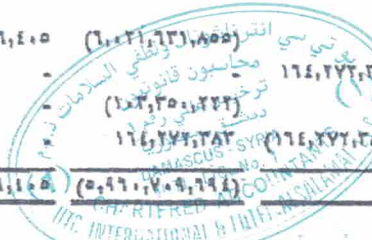 ٦,٤٠٥ (٦,٠٢١,٦٣١,٨٥٥)
- - ١٦٤,٢٧٢,٣
- (١٠٣,٣٥٠,٢٢٢) -
- ١٦٤,٢٧٢,٣٨٣ (١٦٤,٢٧٢,٣
٦,٤٠٥ (٥,٩٦٠,٧٠٩,٦٩٤) -
يو تي سي انترناشيونال ولطفي السلامات
محاسبون قانونيون
ترخيص رقم
دمشق
DAMASCUS - SYRIA
CHARTERED ACCOUNTANTS
UTC INTERNATIONAL & LUTFI ALSALAMAT